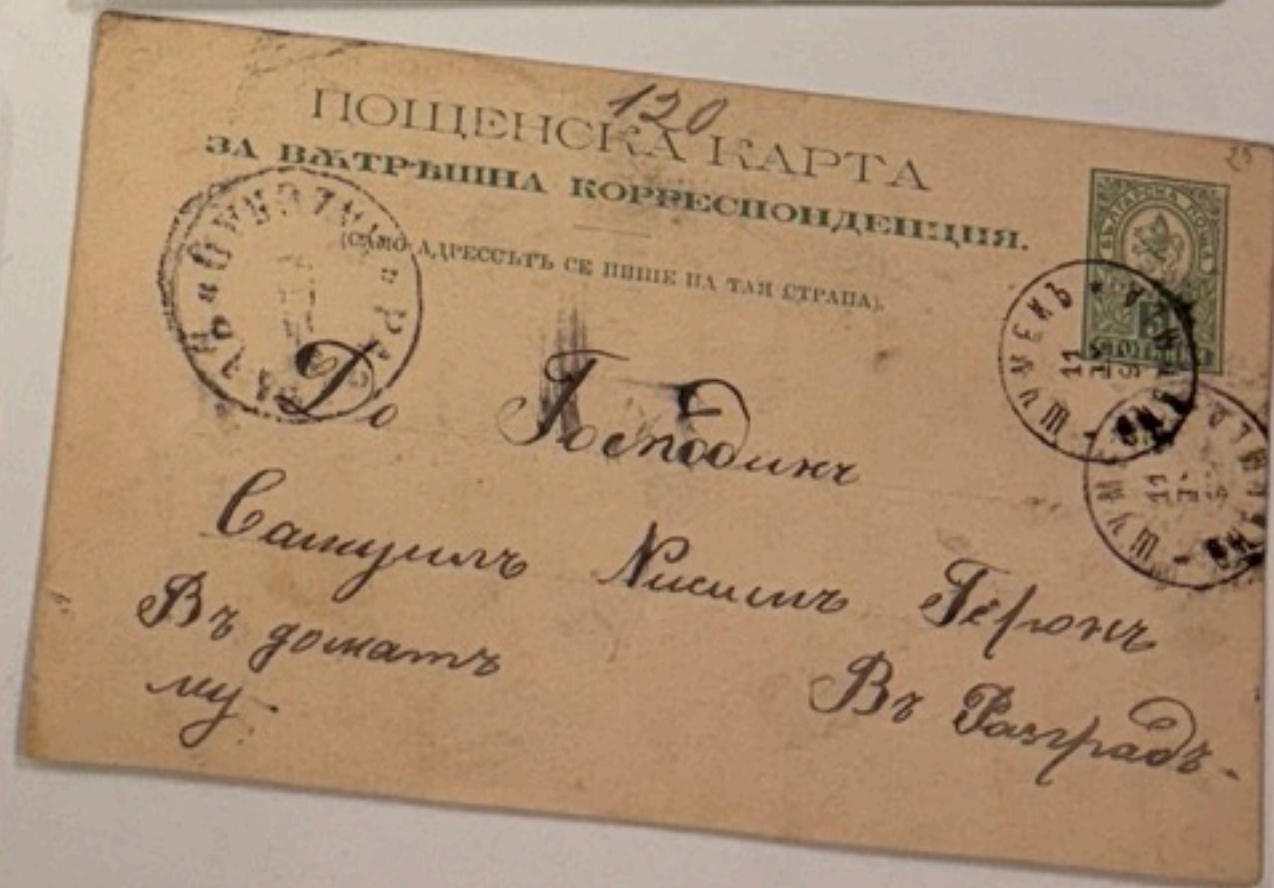 120
ПОЩЕНСКА КАРТА
25
ЗА ВѪТРѢШНА КОРРЕСПОНДЕНЦИЯ.
(САМО АДРЕССЪТЪ СЕ ПИШЕ НА ТАЯ СТРАНА).
БЪЛГАРСКА ПОЩА
5
ШУМЕНЪ
11
ШУМ
11
До Господинъ
Самуилъ Нисимъ Геронъ
Въ доматъ
му.
Въ Разградъ.